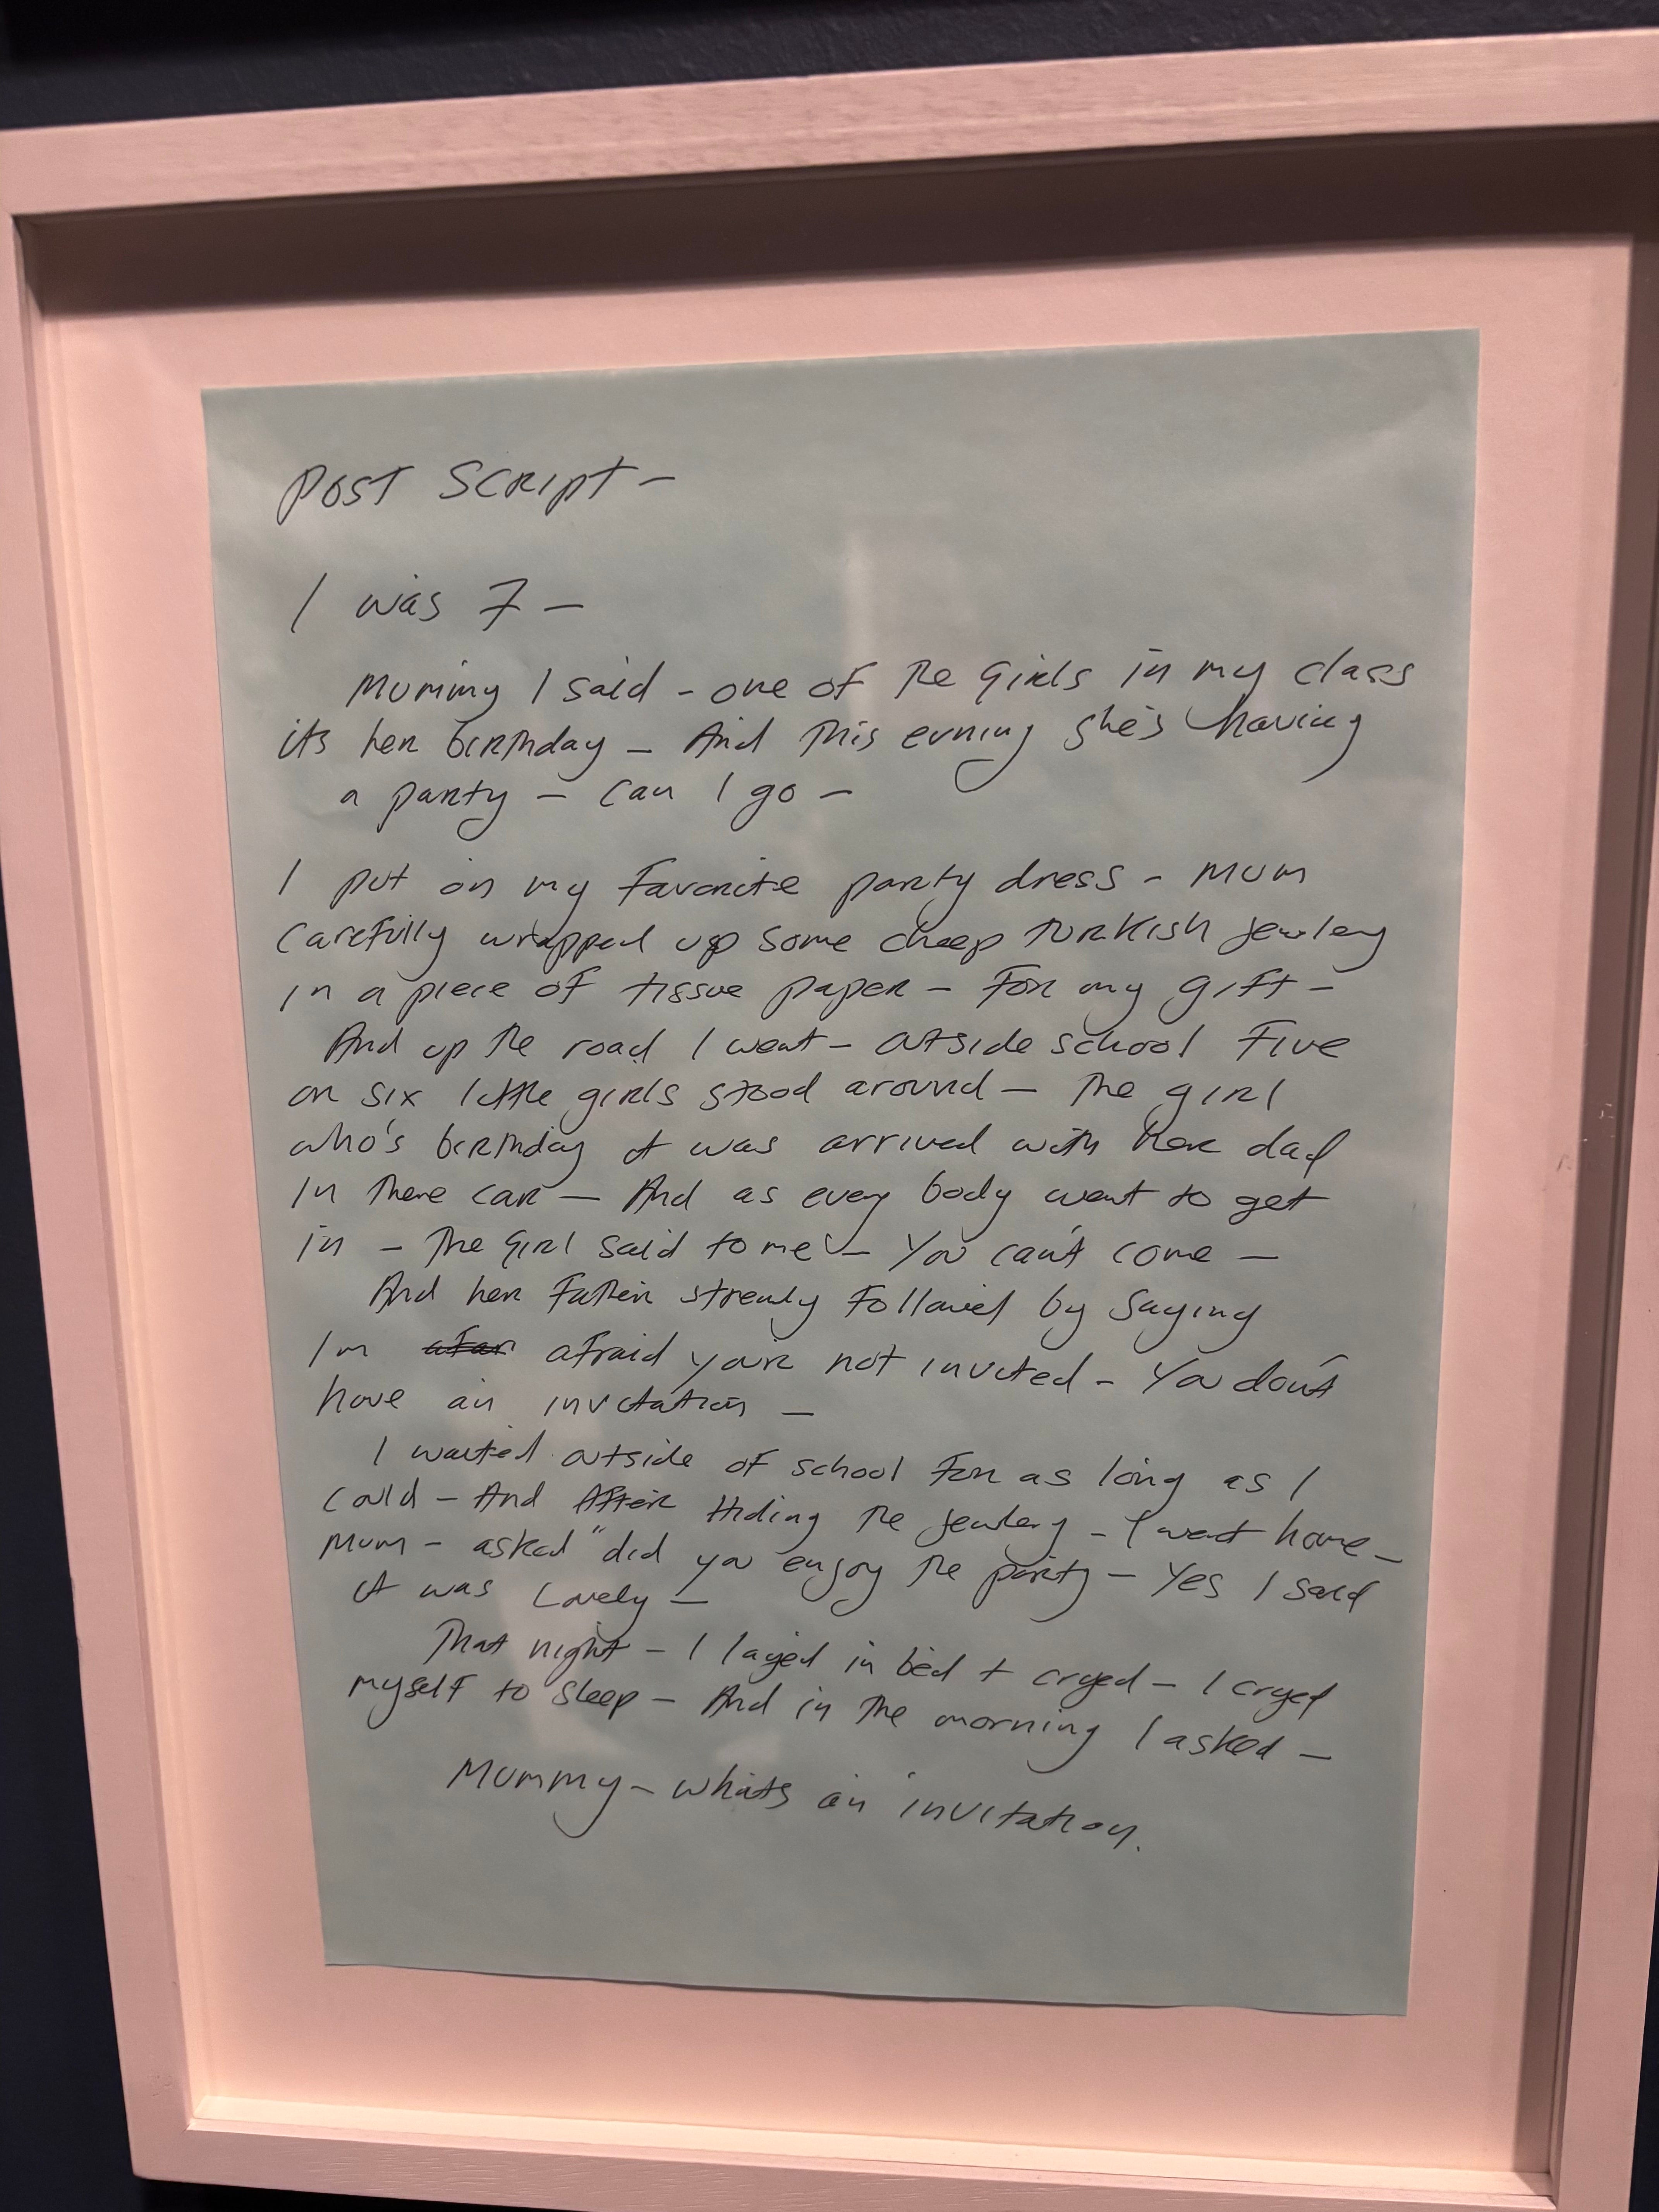 POST SCRIPT –
I was 7 –
Mummy I said – one of the Girls in my class
its her birthday – And This evning she's having
a party – can I go –
I put on my favorite party dress – Mum
carefully wrapped up some cheep TURKISH jewlery
in a piece of tissue paper – For my gift –
And up the road I went – outside school Five
or six little girls stood around – The girl
who's birthday it was arrived with her dad
in there car – And as every body went to get
in – The Girl said to me – You can't come –
And her Father strenly followed by saying
Im afraid your not invited – You don't
have an invitation –
I waited outside of school for as long as I
could – And After Hiding the jewlery – I went home –
Mum – asked "did you enjoy the party – Yes I said
it was Lovely –
That night – I layed in bed + cryed – I cryed
myself to sleep – And in the morning I asked –
Mummy – whats an invitation.